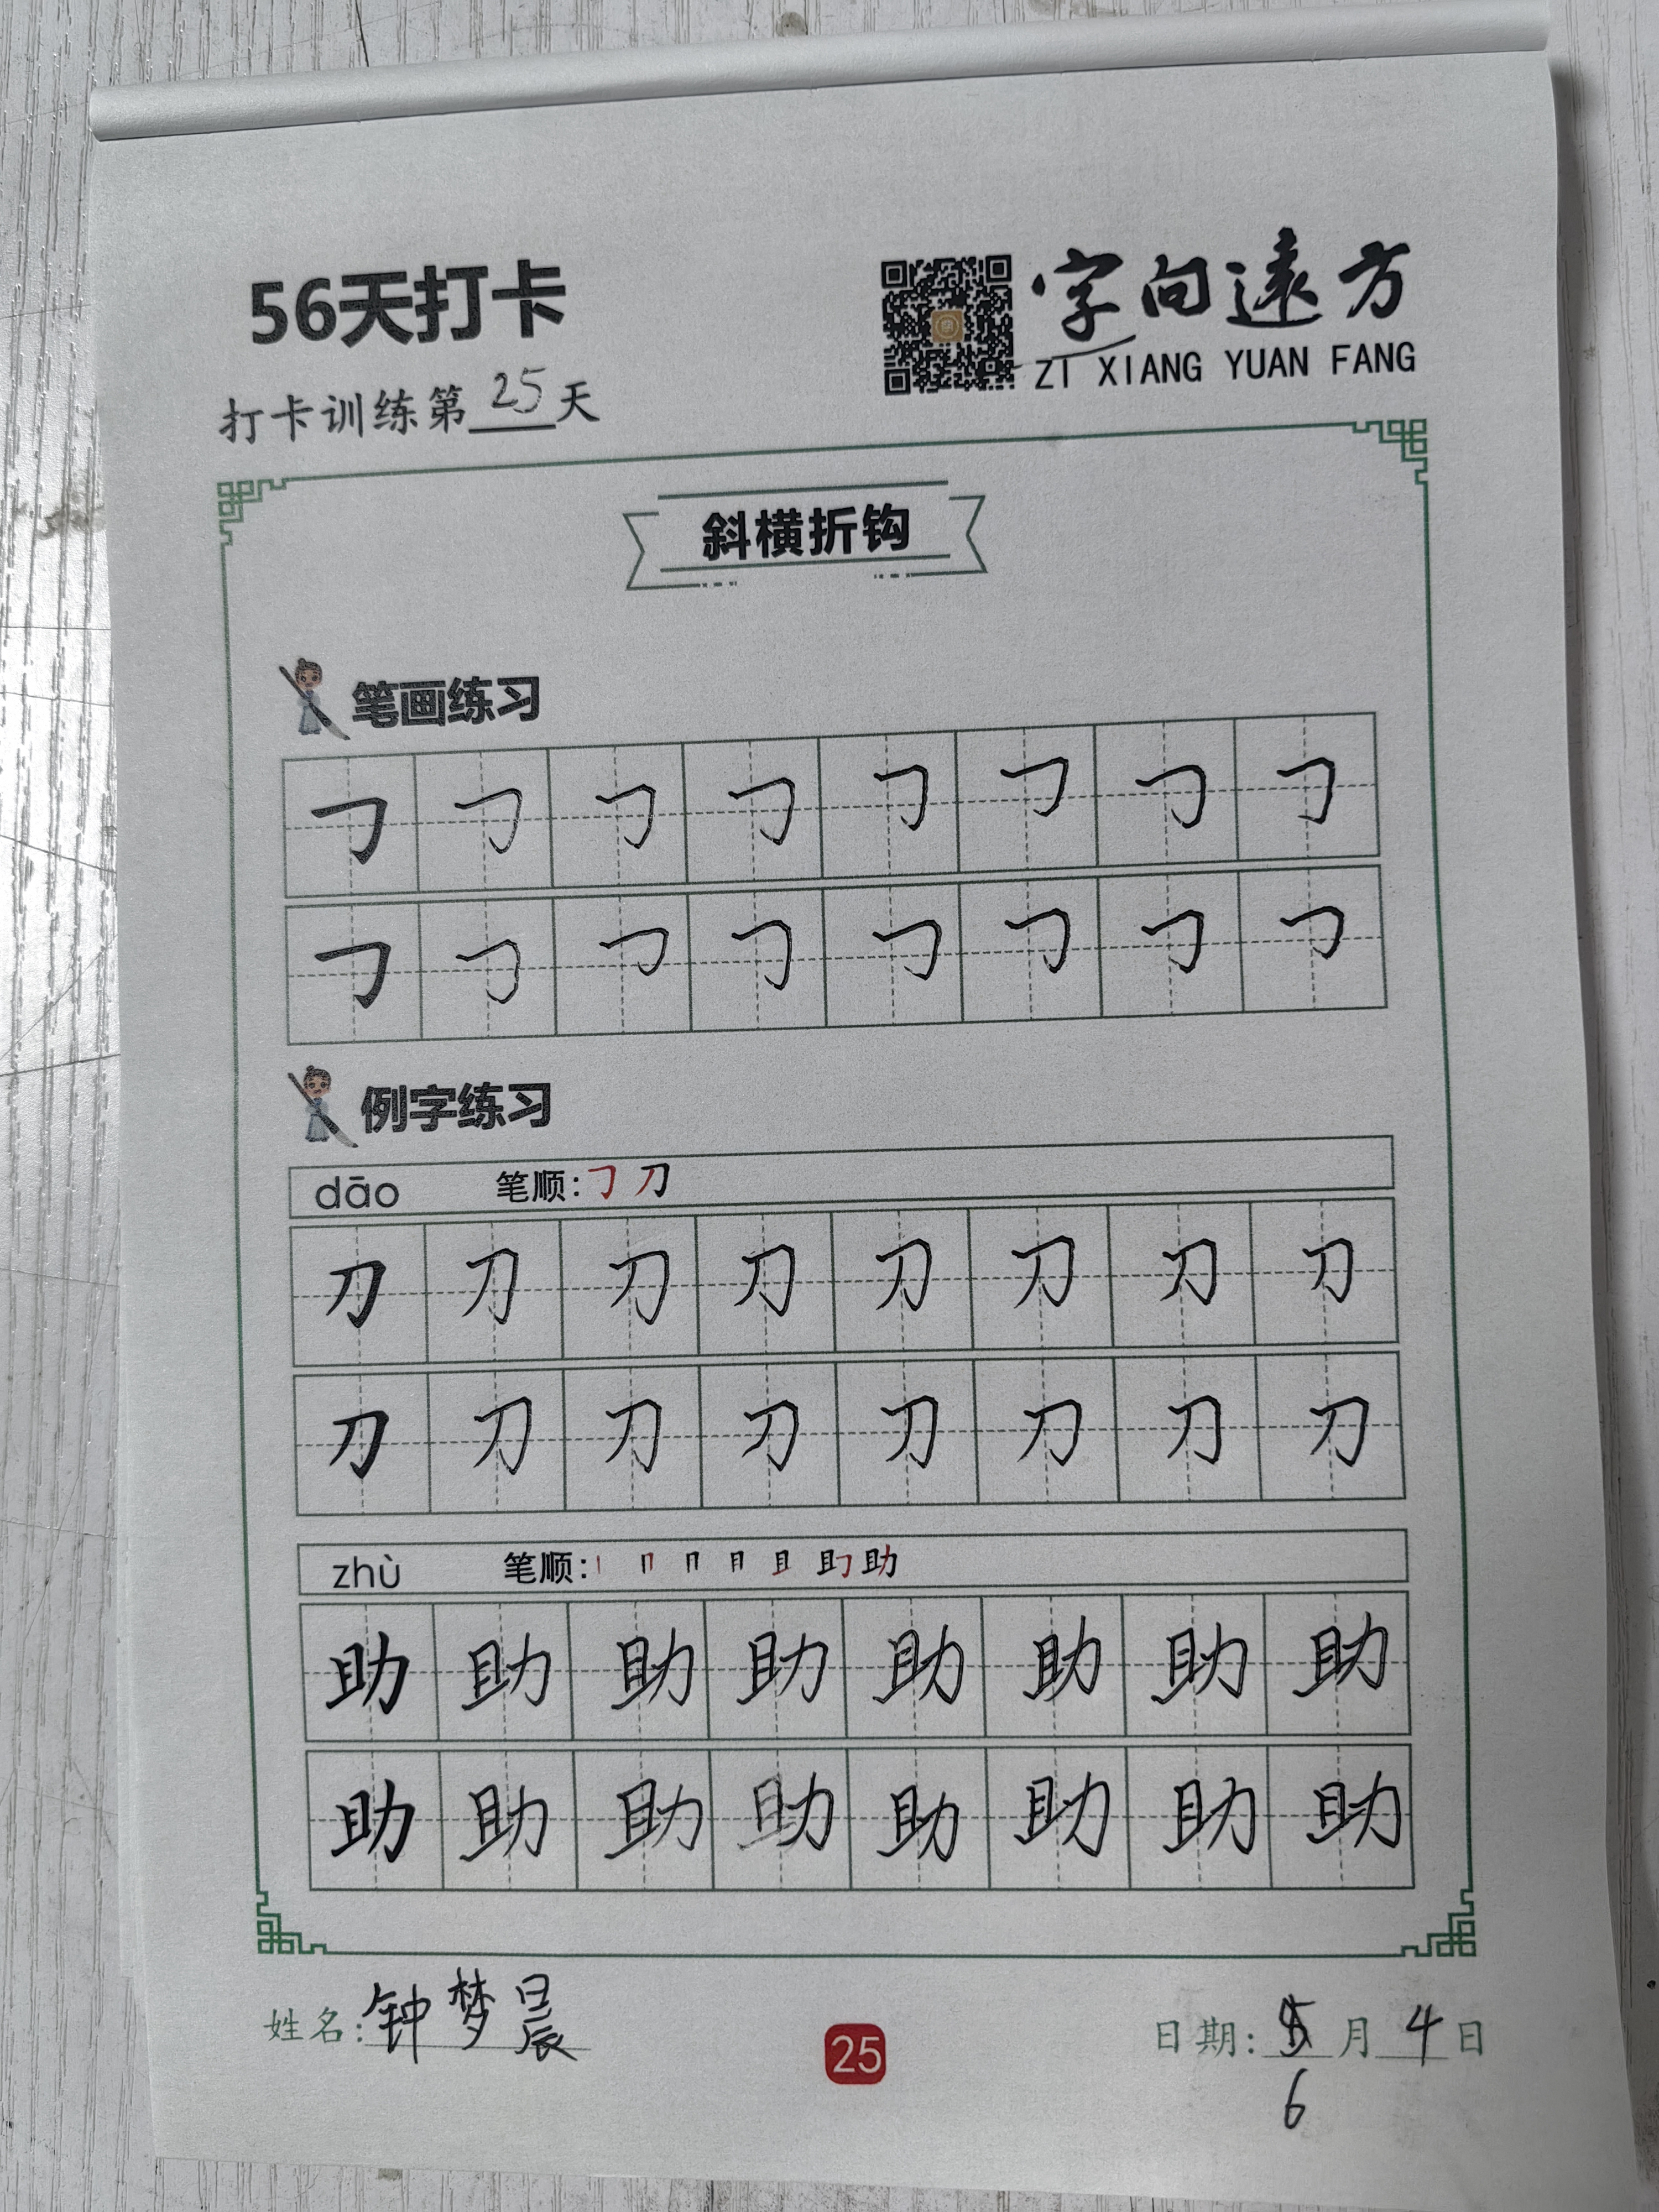 56天打卡
字向遠方
ZI XIANG YUAN FANG
打卡训练第25天
斜横折钩
笔画练习
㇆ ㇆ ㇆ ㇆ ㇆ ㇆ ㇆ ㇆
㇆ ㇆ ㇆ ㇆ ㇆ ㇆ ㇆ ㇆
例字练习
dāo 笔顺:㇆ 刀
刀 刀 刀 刀 刀 刀 刀 刀
刀 刀 刀 刀 刀 刀 刀 刀
zhù 笔顺: 丨 冂 月 且 助
助 助 助 助 助 助 助 助
助 助 助 助 助 助 助 助
姓名:钟梦晨
25
日期: 月4日
6